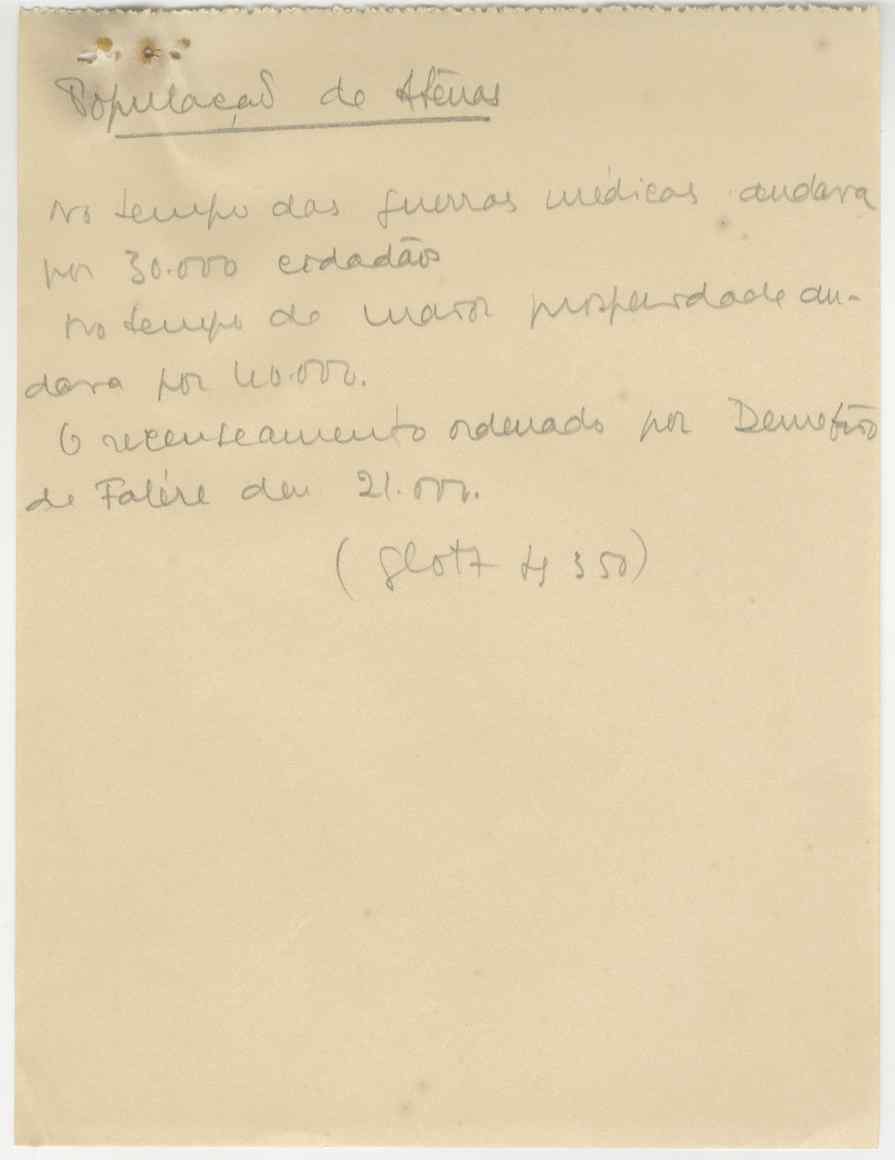 População de Atenas
No tempo das guerras médicas andava
por 30.000 cidadãos
No tempo de maior prosperidade an-
dava por 40.000.
O recenseamento ordenado por Demétrio
de Falére deu 21.000.
(Glotz 350)